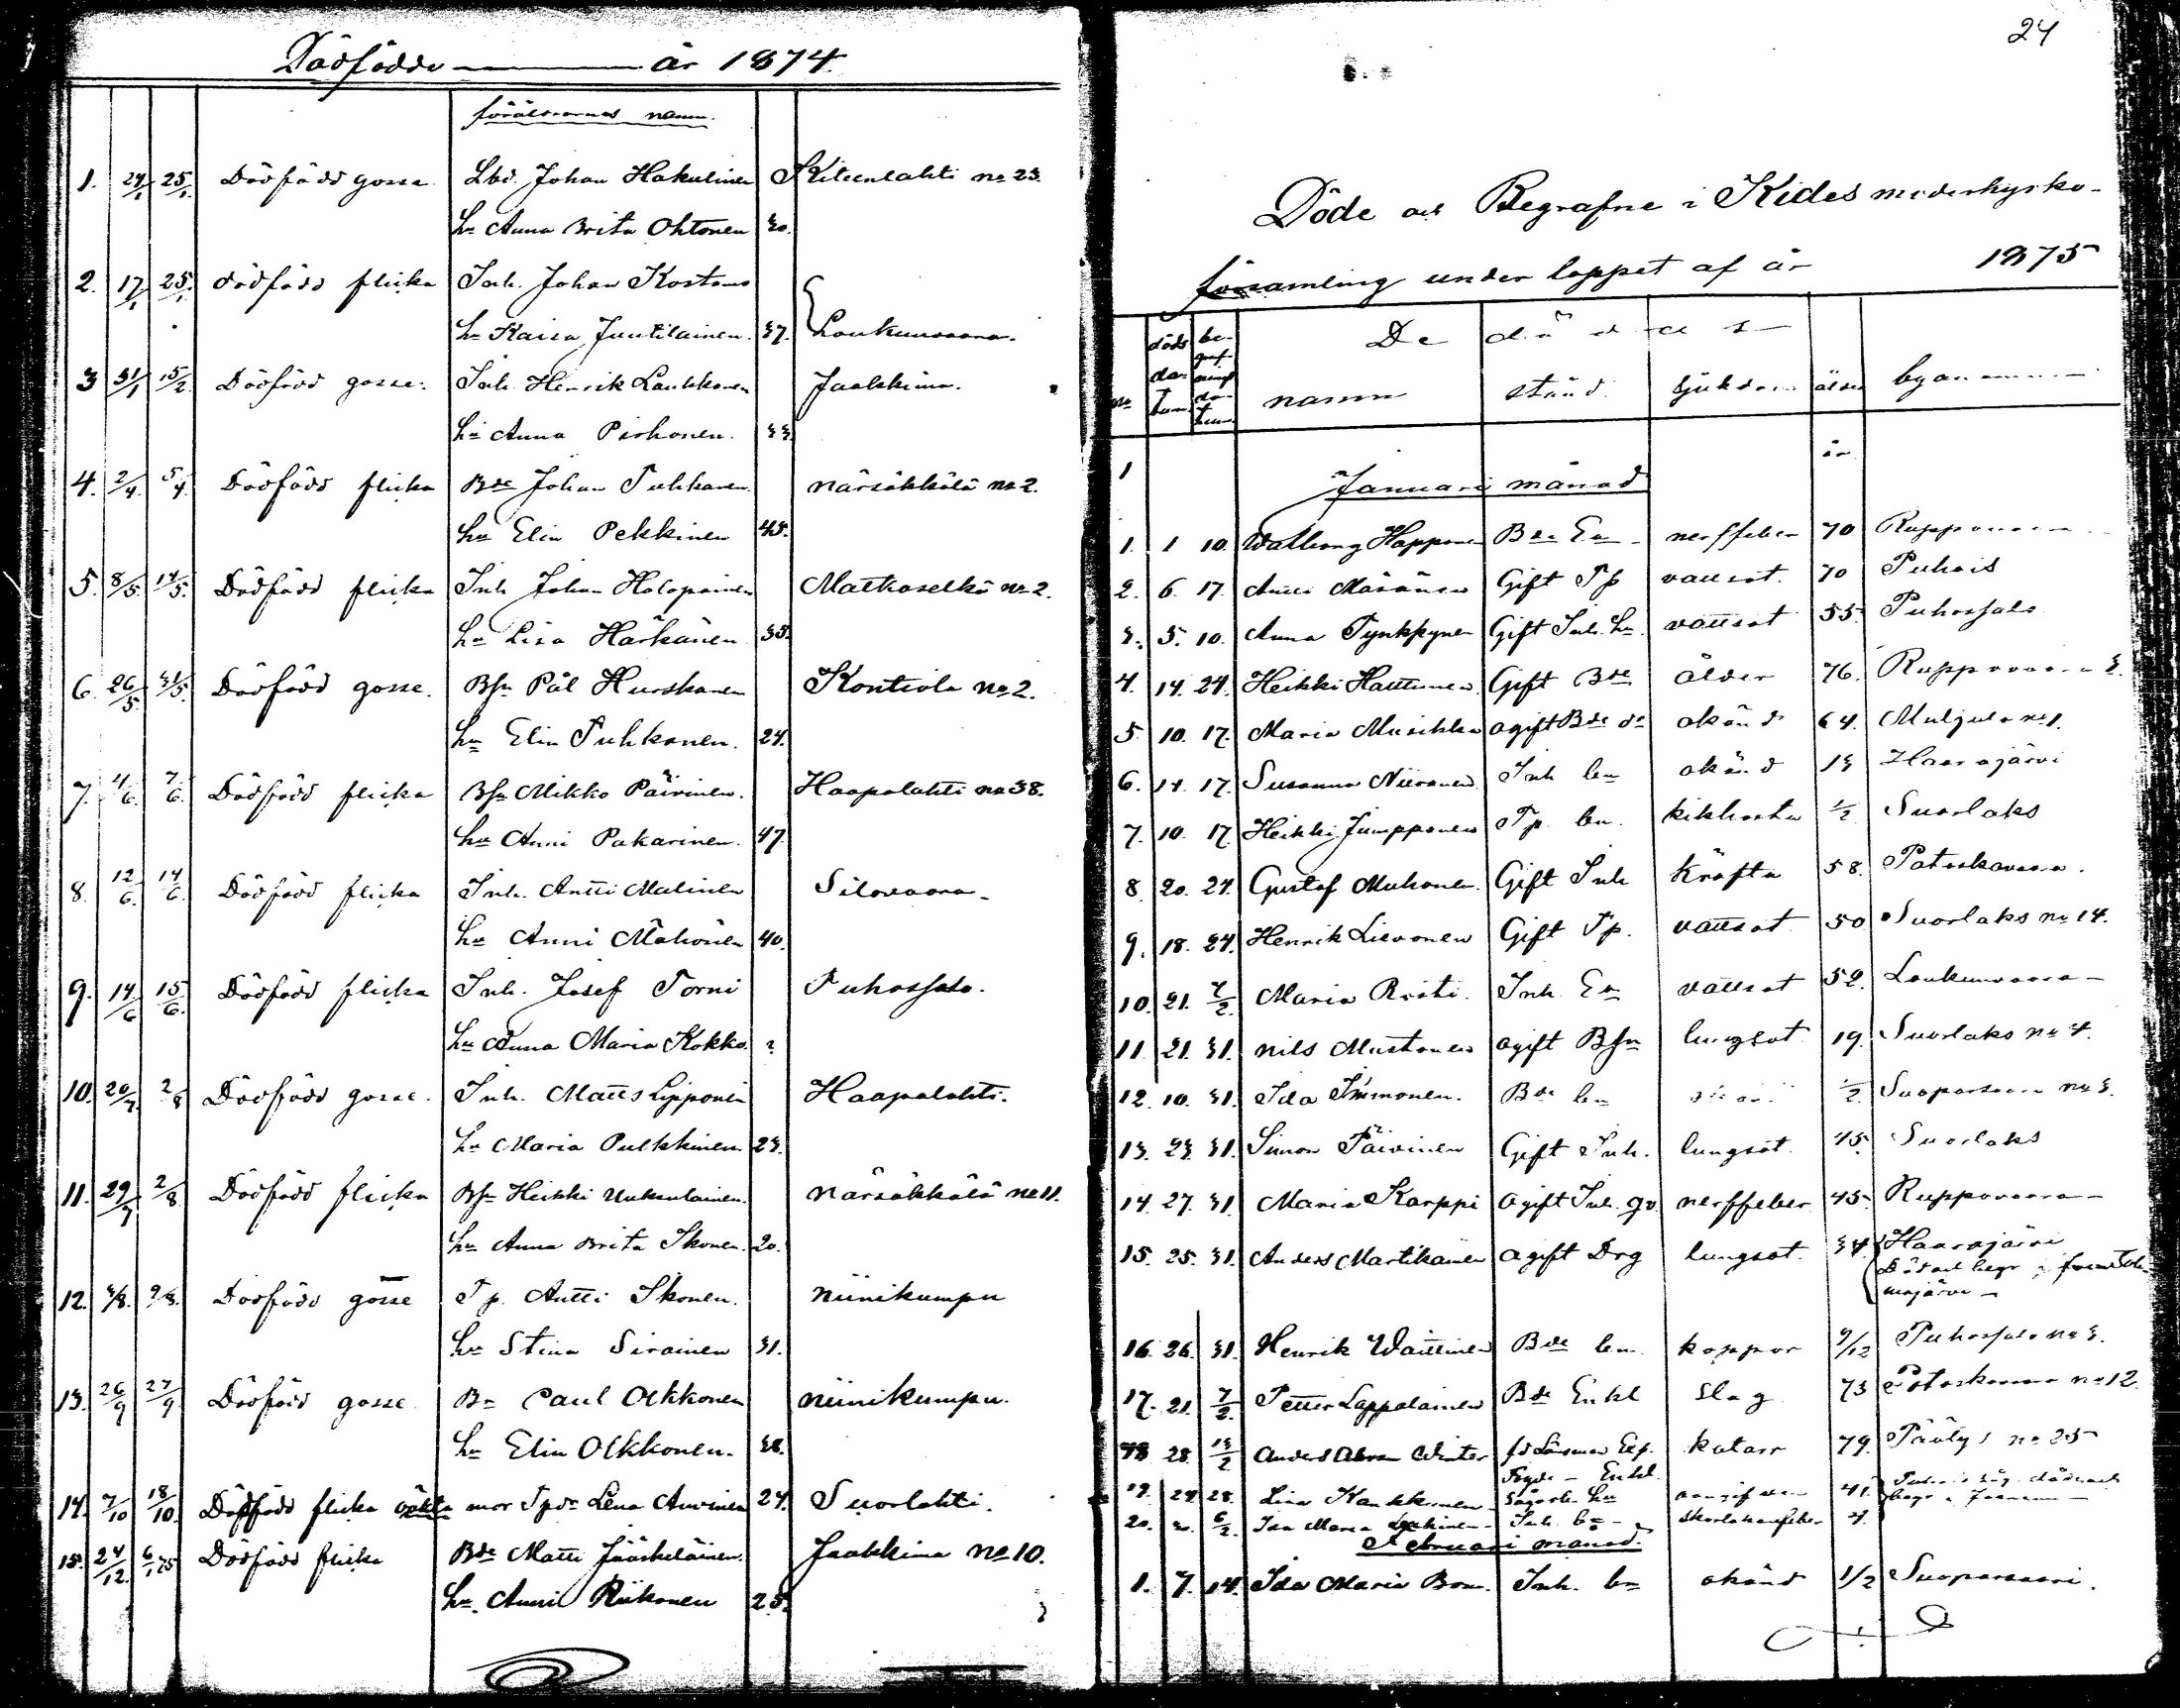 Dödfödde år 1874.
föräldrarnas namn.
1. 24/1 25/1. Dödfödd gosse. Lbd. Johan Hakulinen Kiteenlahti no 23.
hu Anna Brita Ohtonen 30.
2. 17/1 25/1. dödfödd flicka Inh. Johan Kostamo
hu Kaisa Juutilainen. 37. Loukunvaara.
3 31/1 15/2. Dödfödd gosse. Inh. Henrik Laukkanen Jaakkima.
hu Anna Pirhonen. 33.
4. 2/4. 5/4. Dödfödd flicka Bde Johan Tuhkanen närsäkkälä no 2.
hu Elin Pekkinen 45.
5. 8/5. 14/5. Dödfödd flicka Inh Johan Holopainen Matkaselkä no 2.
hu Lisa Härkänen 35.
6. 26/5. 31/5. Dödfödd gosse. Bsn Pål Hurskanen Kontiola no 2.
hu Elin Tuhkanen. 24.
7. 4/6. 7/6. Dödfödd flicka Bsn Mikko Päivinen. Haapalahti no 38.
hu Anni Pakarinen. 47.
8. 12/6. 14/6. Dödfödd flicka Inh. Antti Malinen Silovaara
hu Anni Mähönen 40.
9. 14/6 15/6. Dödfödd flicka Inh. Josef Torni Puhossalo.
hu Anna Maria Kokko. ?
10. 20/7. 2/8 Dödfödd gosse. Inh. Matts Lipponen Haapalahti.
hu Maria Pulkkinen 23.
11. 29/7 2/8 Dödfödd flicka Bsn Heikki Uuksulainen. närsäkkälä no 11.
hu Anna Brita Ikonen. 20.
12. 3/8. 9/8. Dödfödd gosse Tp. Antti Ikonen. niinikumpu
hu Stina Sirainen 31.
13. 26/9 27/9 Dödfödd gosse Bn Paul Olkkonen niinikumpu.
hu Elin Olkkonen. 38.
14. 7/10 18/10. Dödfödd flicka oäkta mor Tpdr Lena Auvinen 24. Suorlahti.
15. 24/12. 6/1 75 Dödfödd flicka Bde Matti Jääskeläinen. Jaakkima no 10.
hu. Anni Riikonen 25.
24
Döde och Begrafne i Kides moderkyrko-
församling under loppet af år 1875
De dödas
no döds datum begrafnings datum namn stånd sjukdom ålder byanamn
år
1 Januari månad
1. 1 10. Walborg Happonen Bde Ea nerffeber 70 Ruppovaara
2. 6. 17. Anni Mäsänen Gift Tp vattsot. 70 Puhois
3. 5. 10. Anna Tynkkynen Gift Inh. hu vattsot 55. Puhossalo
4. 14. 24. Heikki Hattunen Gift Bde ålder 76. Ruppovaara 3.
5. 10. 17. Maria Musikka ogift Bde dr okänd 64. Muljula no 1.
6. 14. 17. Susanna Niiranen Inh bn okänd 13 Haarajärvi
7. 10. 17. Heikki Jumpponen Tp. bn. kikhosta 1/2 Suorlaks
8. 20. 24. Gustaf Muhonen. Gift Inh kräfta 58. Potoskavaara.
9. 18. 24. Henrik Lievonen Gift Tp. vattsot 50 Suorlaks no 14.
10. 21. 7/2. Maria Risti. Inh. Ea vattsot 52. Loukunvaara
11. 21. 31. nils Mustonen ogift Bsn lungsot 19. Suorlaks no 4.
12. 10. 31. Ida Immonen. Bde bn 1/2. Suoparsaari no 3.
13. 23. 31. Simon Päivinen Gift Inh. lungsot. 45. Suorlaks
14. 27. 31. Maria Karppi ogift Inh. qv. nerffeber 45. Ruppovaara
15. 25. 31. Anders Martikainen ogift Drg lungsot. 34. Haarajärvi
Död och begr i
16. 26. 31. Henrik Waittinen Bde bn. koppor 9/12 Puhossalo no 3.
17. 21. 7/2. Petter Lappalainen Bde Enkl slag 73 Potoskavaara no 12.
18 28. 14/2 Anders Abram Winter fd Länsman Exp. katarr 79. Päätys no 25
Enkl.
19. 24 28. Lisa Kankkunen hu 41.
20. 6/2. Ida Maria Inh. bn skarlakansfeber 4.
Februari månad.
1. 7. 14. Ida Maria Inh. bn okänd 1/2 Suoparsaari.